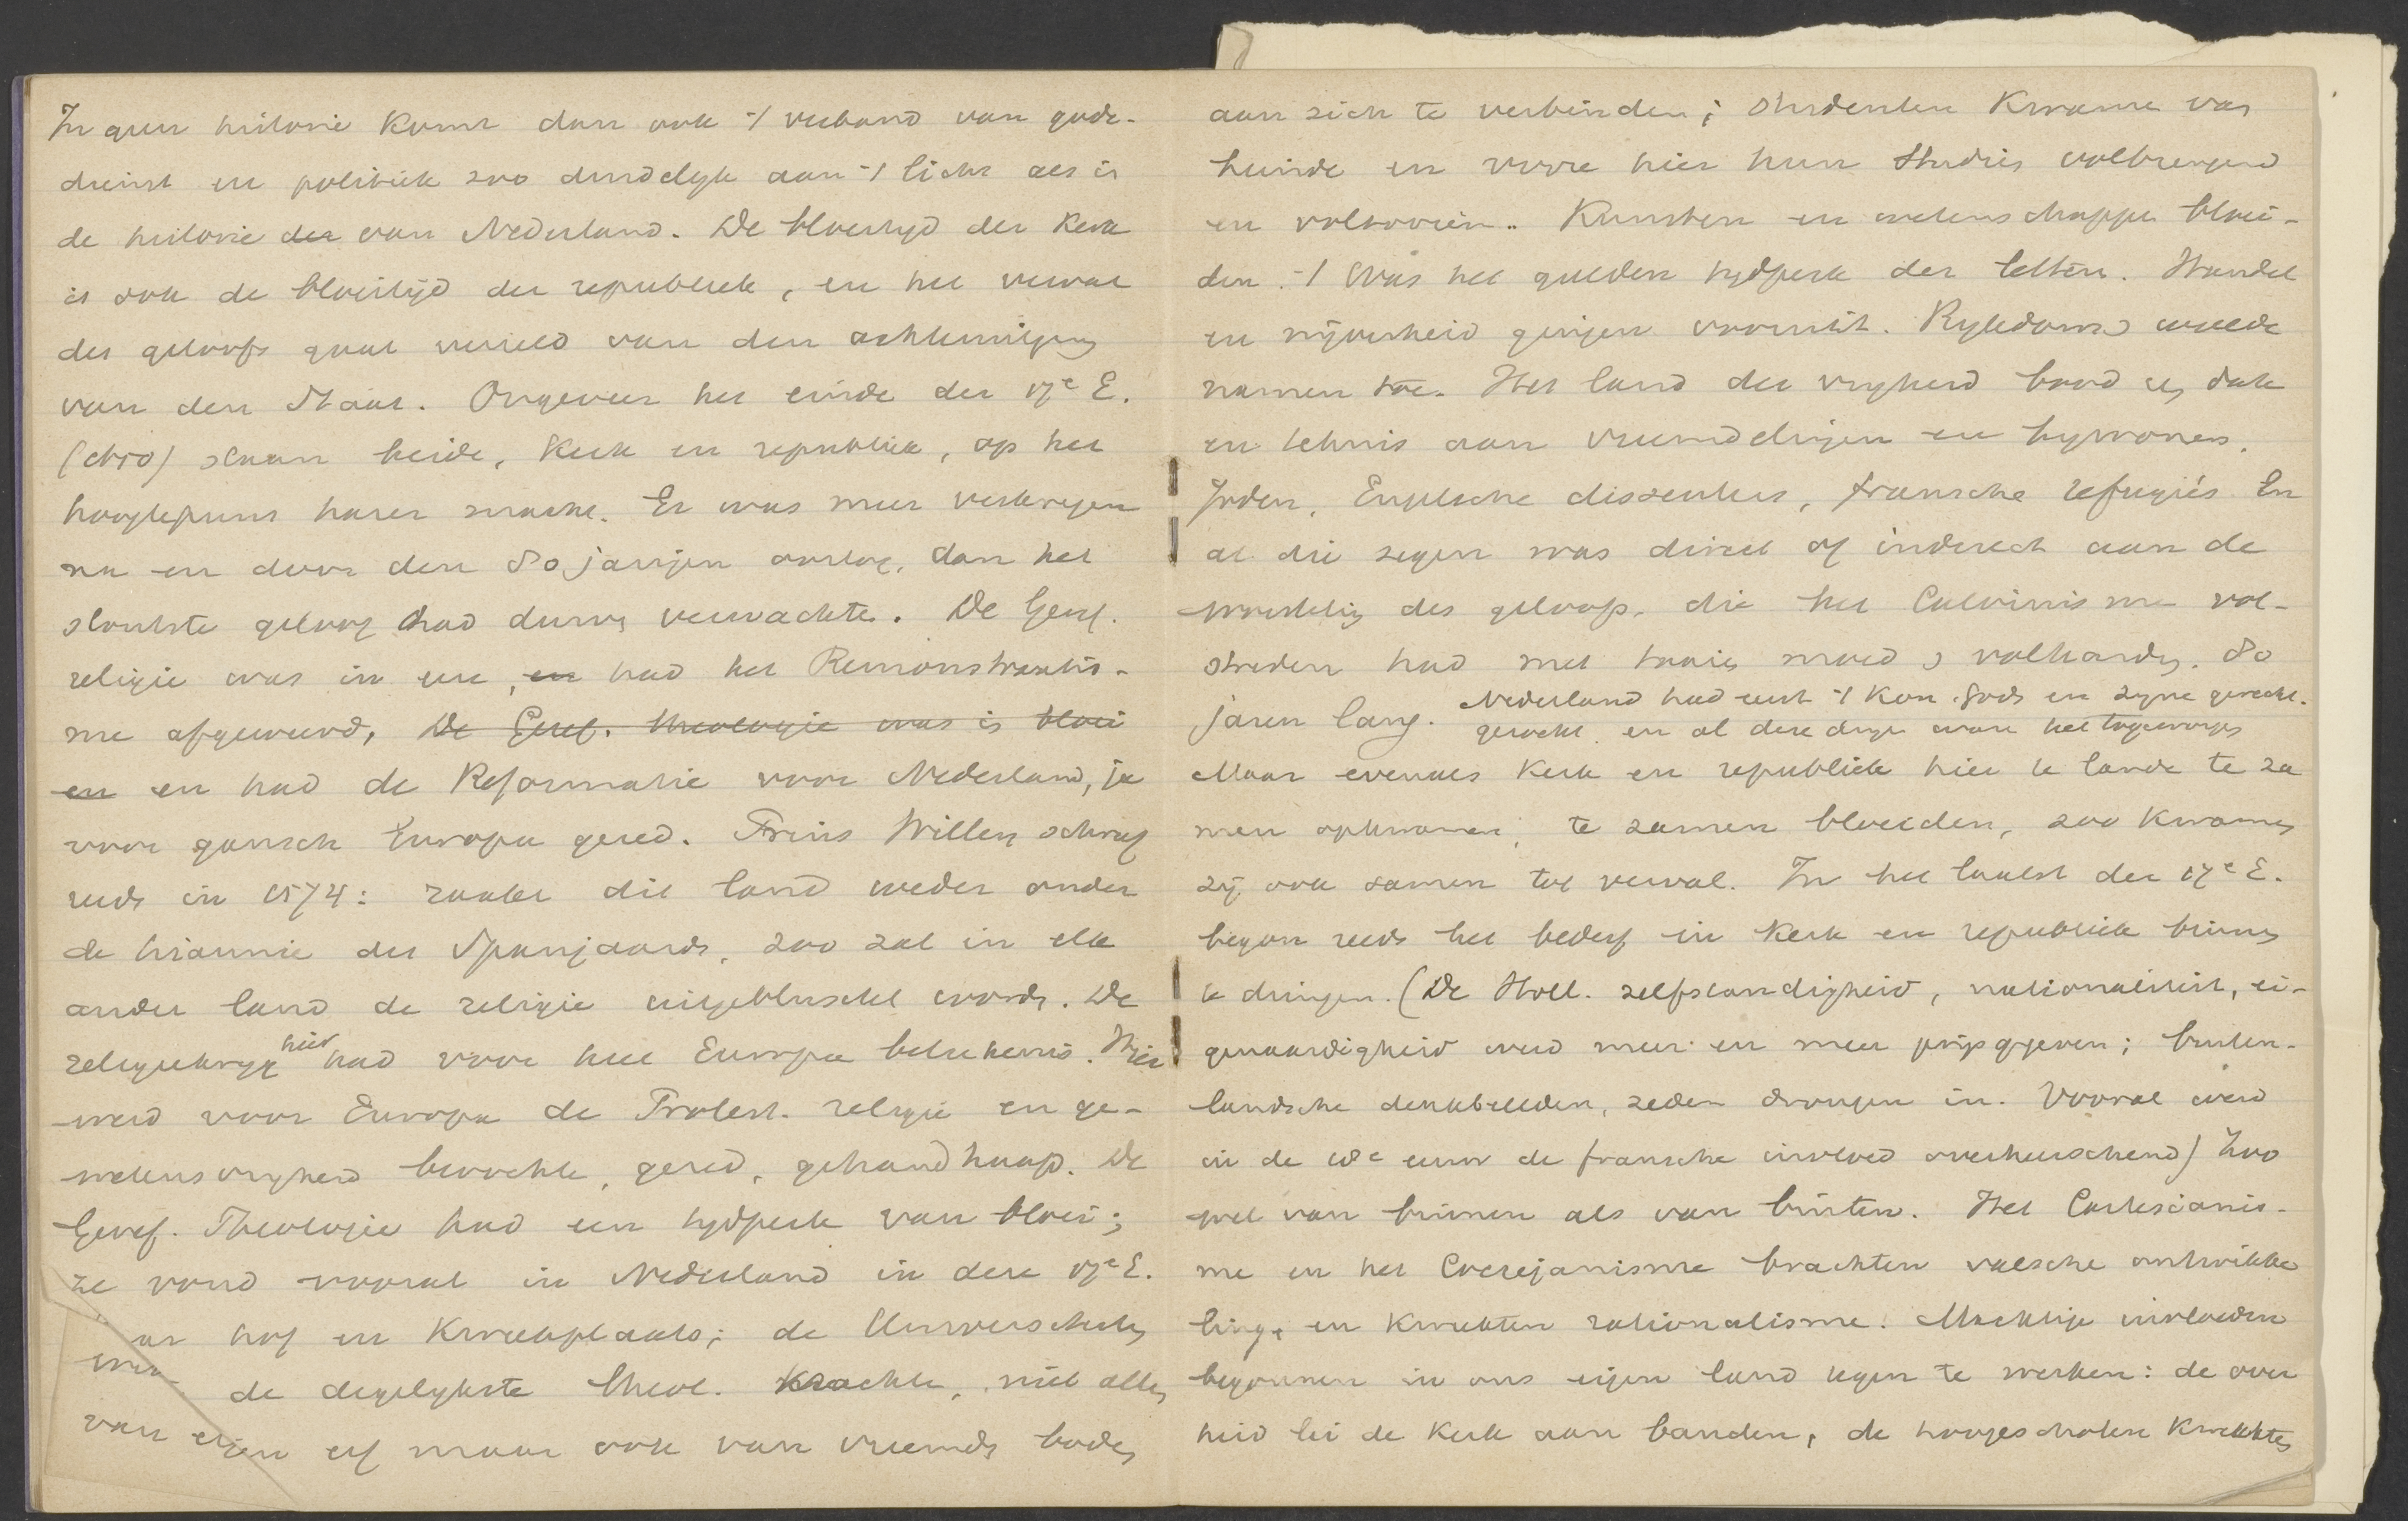 In geen historie komt dan ook 't verband van gods-
dienst en politiek zoo duidelyk aan 't licht als in
de historie der van Nederland. De bloeityd der Kerk
is ook de bloeitijd der republiek, en het verval
des geloofs gaat verzeld van den achteruitgang
van den Staat. Ongeveer het einde der 17e E.
(1650) staan beide, Kerk en republiek, op het
hoogtepunt harer macht. Er was meer verkregen
na en door den 80 jarigen oorlog, dan het
stoutste geloof had durven verwachten. De Geref.
religie was in eere, en had het Remonstrantis-
me afgeweerd, De Geref. theologie was in bloei
en en had de Reformatie voor Nederland, ja
voor gansch Europa gered. Prins Willem schreef
reeds in 1574: raakt dit land weder onder
de tirannie der Spanjaards, zoo zal in elk
ander land de religie uitgebluscht worden. De
religiekryg hier had voor heel Europa beteekenis. Hier
werd voor Europa de Protest. religie en ge-
wetensvryheid bevochten, gered, gehandhaafd. De
Geref. Theologie had een tydperk van bloei;
ze vond vooral in Nederland in deze 17e E.
haar hof en Kweekplaats; de Universiteiten
de degelykste theol. Krachten, niet alleen
van eigen erf maar ook van vreemden bodem
aan zich te verbinden; studenten Kwamen van
heinde en verre hier hun studiën volbrengend
en voltooien. Kunsten en wetenschappen bloei-
den. 't Was het gulden tydperk der letteren. Handel
en nijverheid gingen vooruit. Rykdom en weelde
namen toe. Het land der vryheid bood een dak
en tehuis aan vreemdelingen en bywoners.
Joden, Engelsche dissenters, fransche refugiés. En
al die zegen was direct of indirect aan de
worsteling des geloofs, die het Calvinisme vol-
streden had met taaien moed en volharding. 80
jaren lang. Nederland had eerst 't Kon. Gods en zyne gerecht.
gezocht en al deze dingen waren het toegeworpen
Maar evenals Kerk en republiek hier te lande te za
men opkwamen, te zamen bloeiden, zoo Kwamen
zij ook samen tot verval. In het laatst der 17e E.
begon reeds het bederf in Kerk en republiek binnen
te dringen. (De Holl. zelfstandigheid, nationaliteit, ei-
genaardigheid werd meer en meer prijs gegeven; buiten-
landsche denkbeelden, zeden drongen in. Vooral werd
in de 18e eeuw de fransche invloed overheerschend) Zoo
wel van binnen als van buiten. Het Cartesianis-
me en het Coccejanisme brachten valsche ontwikke
ling, en Kweekten rationalisme. Machtige invloeden
begonnen in ons eigen land tegen te werken: de over
heid lei de Kerk aan banden, de hoogescholen Kweekten